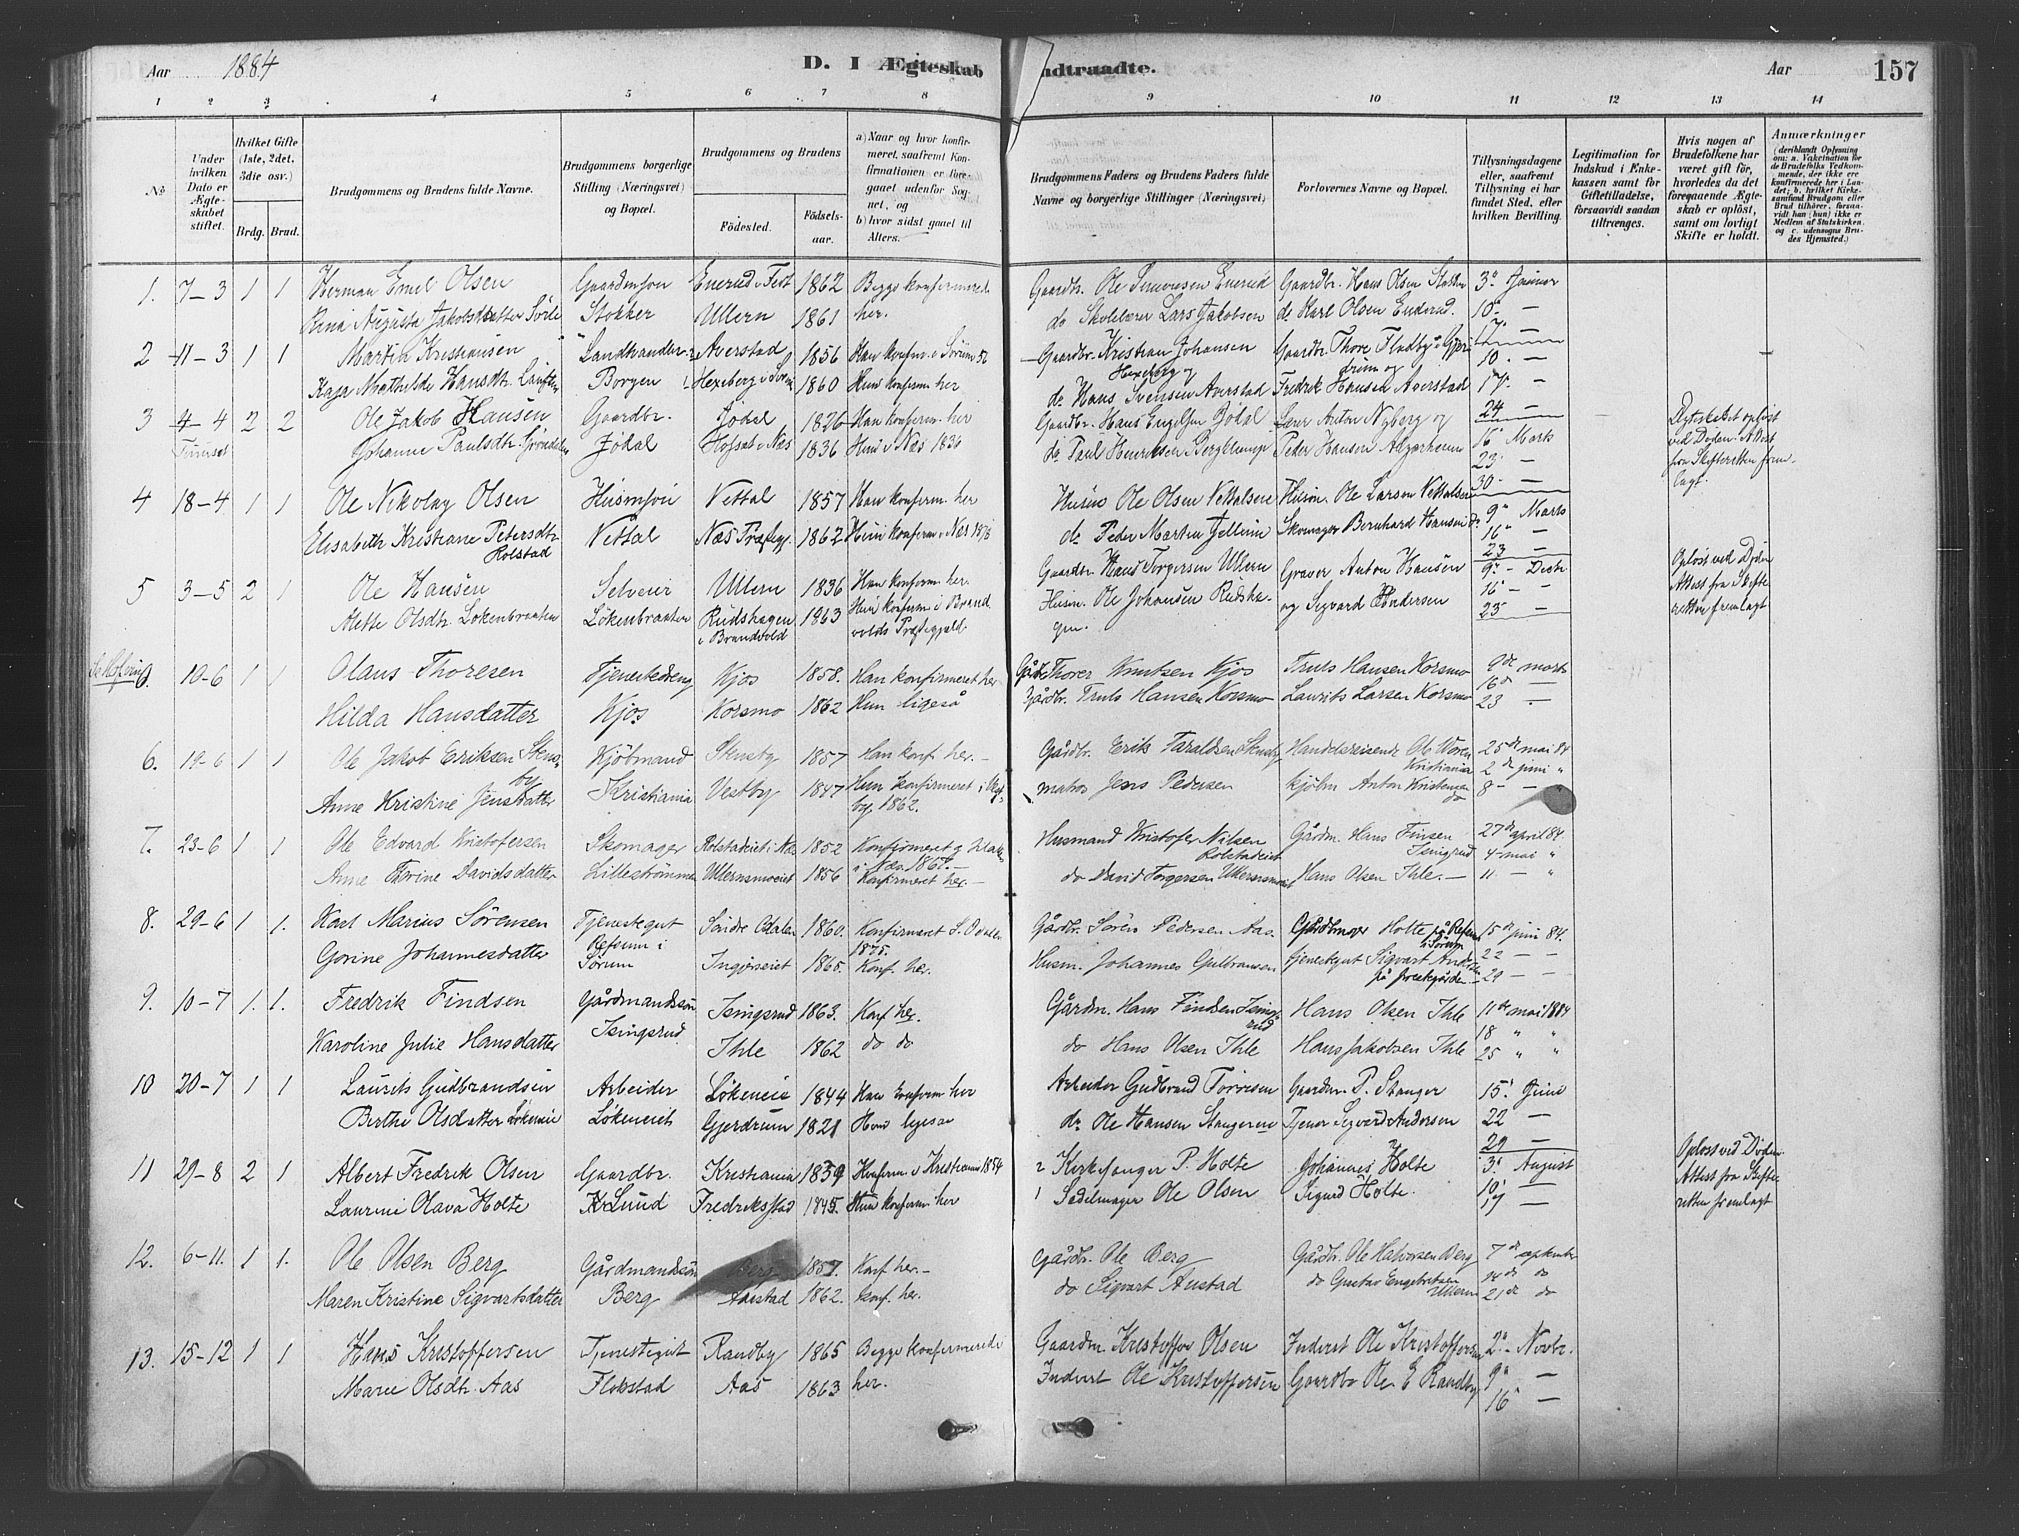 Aar 1884
D. I Ægteskab
indtraadte.
Aar
157
1 2 3 4 5 6 7 8 9 10 11 12 13 14
No.
Under hvilken Dato er Ægteskabet stiftet.
Hvilket Gifte (1ste, 2det, 3die osv.)
Brdg. Brud.
Brudgommens og Brudens fulde Navne.
Brudgommens borgerlige Stilling (Næringsvei) og Bopæl.
Brudgommens og Brudens
Fødested.
Fødselsaar.
a) Naar og hvor konfirmeret, saafremt Konfirmationen er foregaaet udenfor Sognet, og
b) hvor sidst gaaet til Alters.
Brudgommens Faders og Brudens Faders fulde Navne og borgerlige Stillinger (Næringsvei)
Forlovernes Navne og Bopæl.
Tillysningsdagene eller, saafremt Tillysning ei har fundet Sted, efter hvilken Bevilling.
Legitimation for Indskud i Enkekassen samt for Giftetilladelse, forsaavidt saadan tiltrænges.
Hvis nogen af Brudefolkene har været gift før, hvorledes da det foregaaende Ægteskab er opløst, samt om lovligt Skifte er holdt.
Anmærkninger
1. 7-3 1 1 Herman Emil Olsen Gaardmsøn Enerud i Fest 1862 Begge konfirmerede Gaardbr. Ole Simonsen Enerud Gaardbr. Hans Olsen 3' Januar
Augusta Jakobsdatter Stokker Ullern 1861 her. do Skolelærer Lars Jakobsen do Karl Olsen Enderud. 10. —
17. —
2 11-3 1 1 Martin Kristiansen Landhandler Averstad 1856 Han konfirm. i Sørum Gaardbr. Kristian Johansen Hexeberg og Gaardbr. Thore Fladby i 10. —
Kaja Mathilde Hansdtr. Borgen Hexeberg i 1860 Hun konfirm her do Hans Svensen Averstad Fredrik Hansen Averstad 17. —
24 —
3 4-4 2 2 Ole Jakob Hansen Gaardbr. Jødal 1826 Han konfirm. her Gaardbr. Hans Engelsen Jødal Lærer Anton Nyberg og 16' Marts Ægteskabet opløst
Johanne Paulsdtr. Jødal Hofsæt i Næs 1836 Hun i Næs do Paul Henriksen Peder Hansen Algarheim 23. — ved Døden. Attest
30. — fra Skifteretten fremlagt.
4 18-4 1 1 Ole Nikolay Olsen Husmsøn Vettal 1857 Han konfirm. her Husm Ole Olsen Husm. Ole Larsen 9" Marts
Elisabeth Kristiane Petersdtr. Holstad Vettal Næs Præstegj. 1862 Hun konfirm i Næs do Peder Martin Skomager Bernhard Hansen do 16" —
23 —
5 3-5 2 1 Ole Hansen Selveier Ullern 1836 Han konfirm her. Gaardbr Hans Torgersen Ullern Graver Anton Hansen 9. — Opløst ved Døden
Mette Olsdtr. Løkenbraaten Løkenbraaten Rudshagen i Brandvold 1863 Hun konfirm i Brandvolds Præstegjeld. Husm. Ole Johansen Rudshagen. og Sigvard Andersen 16 — Attest fra Skifte
23 — retten fremlagt
10-6 1 1 Olaus Thoresen Tjenestedreng Kjos 1858. Han konfirmeret her Gårdbr Thorer Knutsen Kjos Truls Hansen Korsmo 9de marts
Hilda Hansdatter Kjos Korsmo 1862 Hun ligeså Gårdbr. Truls Hansen Korsmo Laurits Larsen Korsmo 16d —
23 —
6. 19-6 1 1 Ole Jakob Eriksen Stensby Kjöbmand Stensby 1857 Han konf. her. — Gårdbr. Erik Taraldsen Stensby Handelsreisende Ole Woren Kristiania 25de mai 84
Anne Kristine Jensdatter Kristiania Vestby 1847 Hun konfirmeret i Vestby 1862. matros Jens Pedersen kjøbm Anton Kristensen do 2de juni "
8 — "
7. 23-6 1 1 Ole Edvard Kristofersen Skomager Rolstadeiet i Næs 1852 Konfirmeret i Næs. 1867. — Husmand Kristofer Nilsen Rolstadeiet Gårdm. Hans Finsen Isingrud 27de april 84.
Anne Thorine Davidsdatter Lillestrømmen Ullernsmoeiet 1856 Konfirmeret her. — do David Torgersen Ullernsmoeiet Hans Olsen Ihle. — 4 mai "
11 — "
8. 29-6 1 1. Karl Marius Sörensen Tjenestegut Refsum i Söndre Odalen 1860. Konfirmeret S. Odalen 1875. Gårdbr. Sören Pedersen Aas. Gårdbruger Holte på Refsum i Sørum 15de juni 84.
Gorine Johannesdatter Sörum Ingjerseiet 1865. Konf. her. Husm. Johannes Gulbransen tjenestgut Sigvart Andersen på prestegården 22 — —
29 — —
9. 10-7 1. 1. Fredrik Findsen Gårdmandssön Isingsrud 1863. Konf. her. Gårdm. Hans Findsen Isingsrud Hans Olsen Ihle 11de mai 1884
Karoline Julie Hansdatter Isingsrud Ihle 1862 do do do Hans Olsen Ihle Hans Jakobsen Ihle 18 " "
25 " "
10 20-7 1 1 Laurits Gudbrandsen Arbeider Løkeneie 1844 Han konfirm her Arbeider Gudbrand Toresen Gaardm. P. Stanger 15' Juni
Berthe Olsdatter Løkeneie Løkeneiet Gjerdrum 1821 Hun ligesaa do Ole Hansen Stangerene Tjener Sigvard Andersen 22 —
29 —
11 29-8 2 1 Albert Fredrik Olsen Gaardbr. Kristiania 1839 Konfirm. i Kristiania 1854 2 Kirkesanger P. Holte Johannes Holte 3' August Opløst ved Døden
Laurine Olava Holte Lund Fredriksstad 1845. Hun konfirm her 1 Sadelmager Ole Olsen Sigurd Holte. 10' — Attest fra Skifte
17 — retten fremlagt
12. 6-11. 1 1. Ole Olsen Berg Gårdmandssön Berg 1857. Konf. her. — Gårdbr. Ole Berg Gårdbr. Ole Halvorsen Berg 7de september
Maren Kristine Sigvartsdatter Berg Austad 1862. konf. her. do Sigvart Austad do Gustav Engebretsen Ullern 14de do
21de do
13. 15-12 1 1 Hans Kristoffersen Tjenestegut Randby 1865 Begge konfirmerede Gaardm. Kristoffer Olsen Inderst Ole Kristoffersen 2" Novbr.
Marie Olsdtr. Aas Flakstad Aas 1863 her. Inderst Ole Kristoffersen Gaardbr Ole E Randby 9" —
16" —